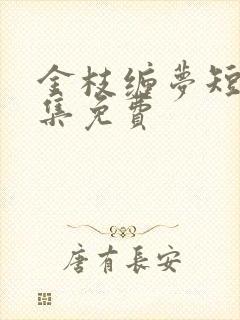 金枝缠梦短
集免费
唐有長安